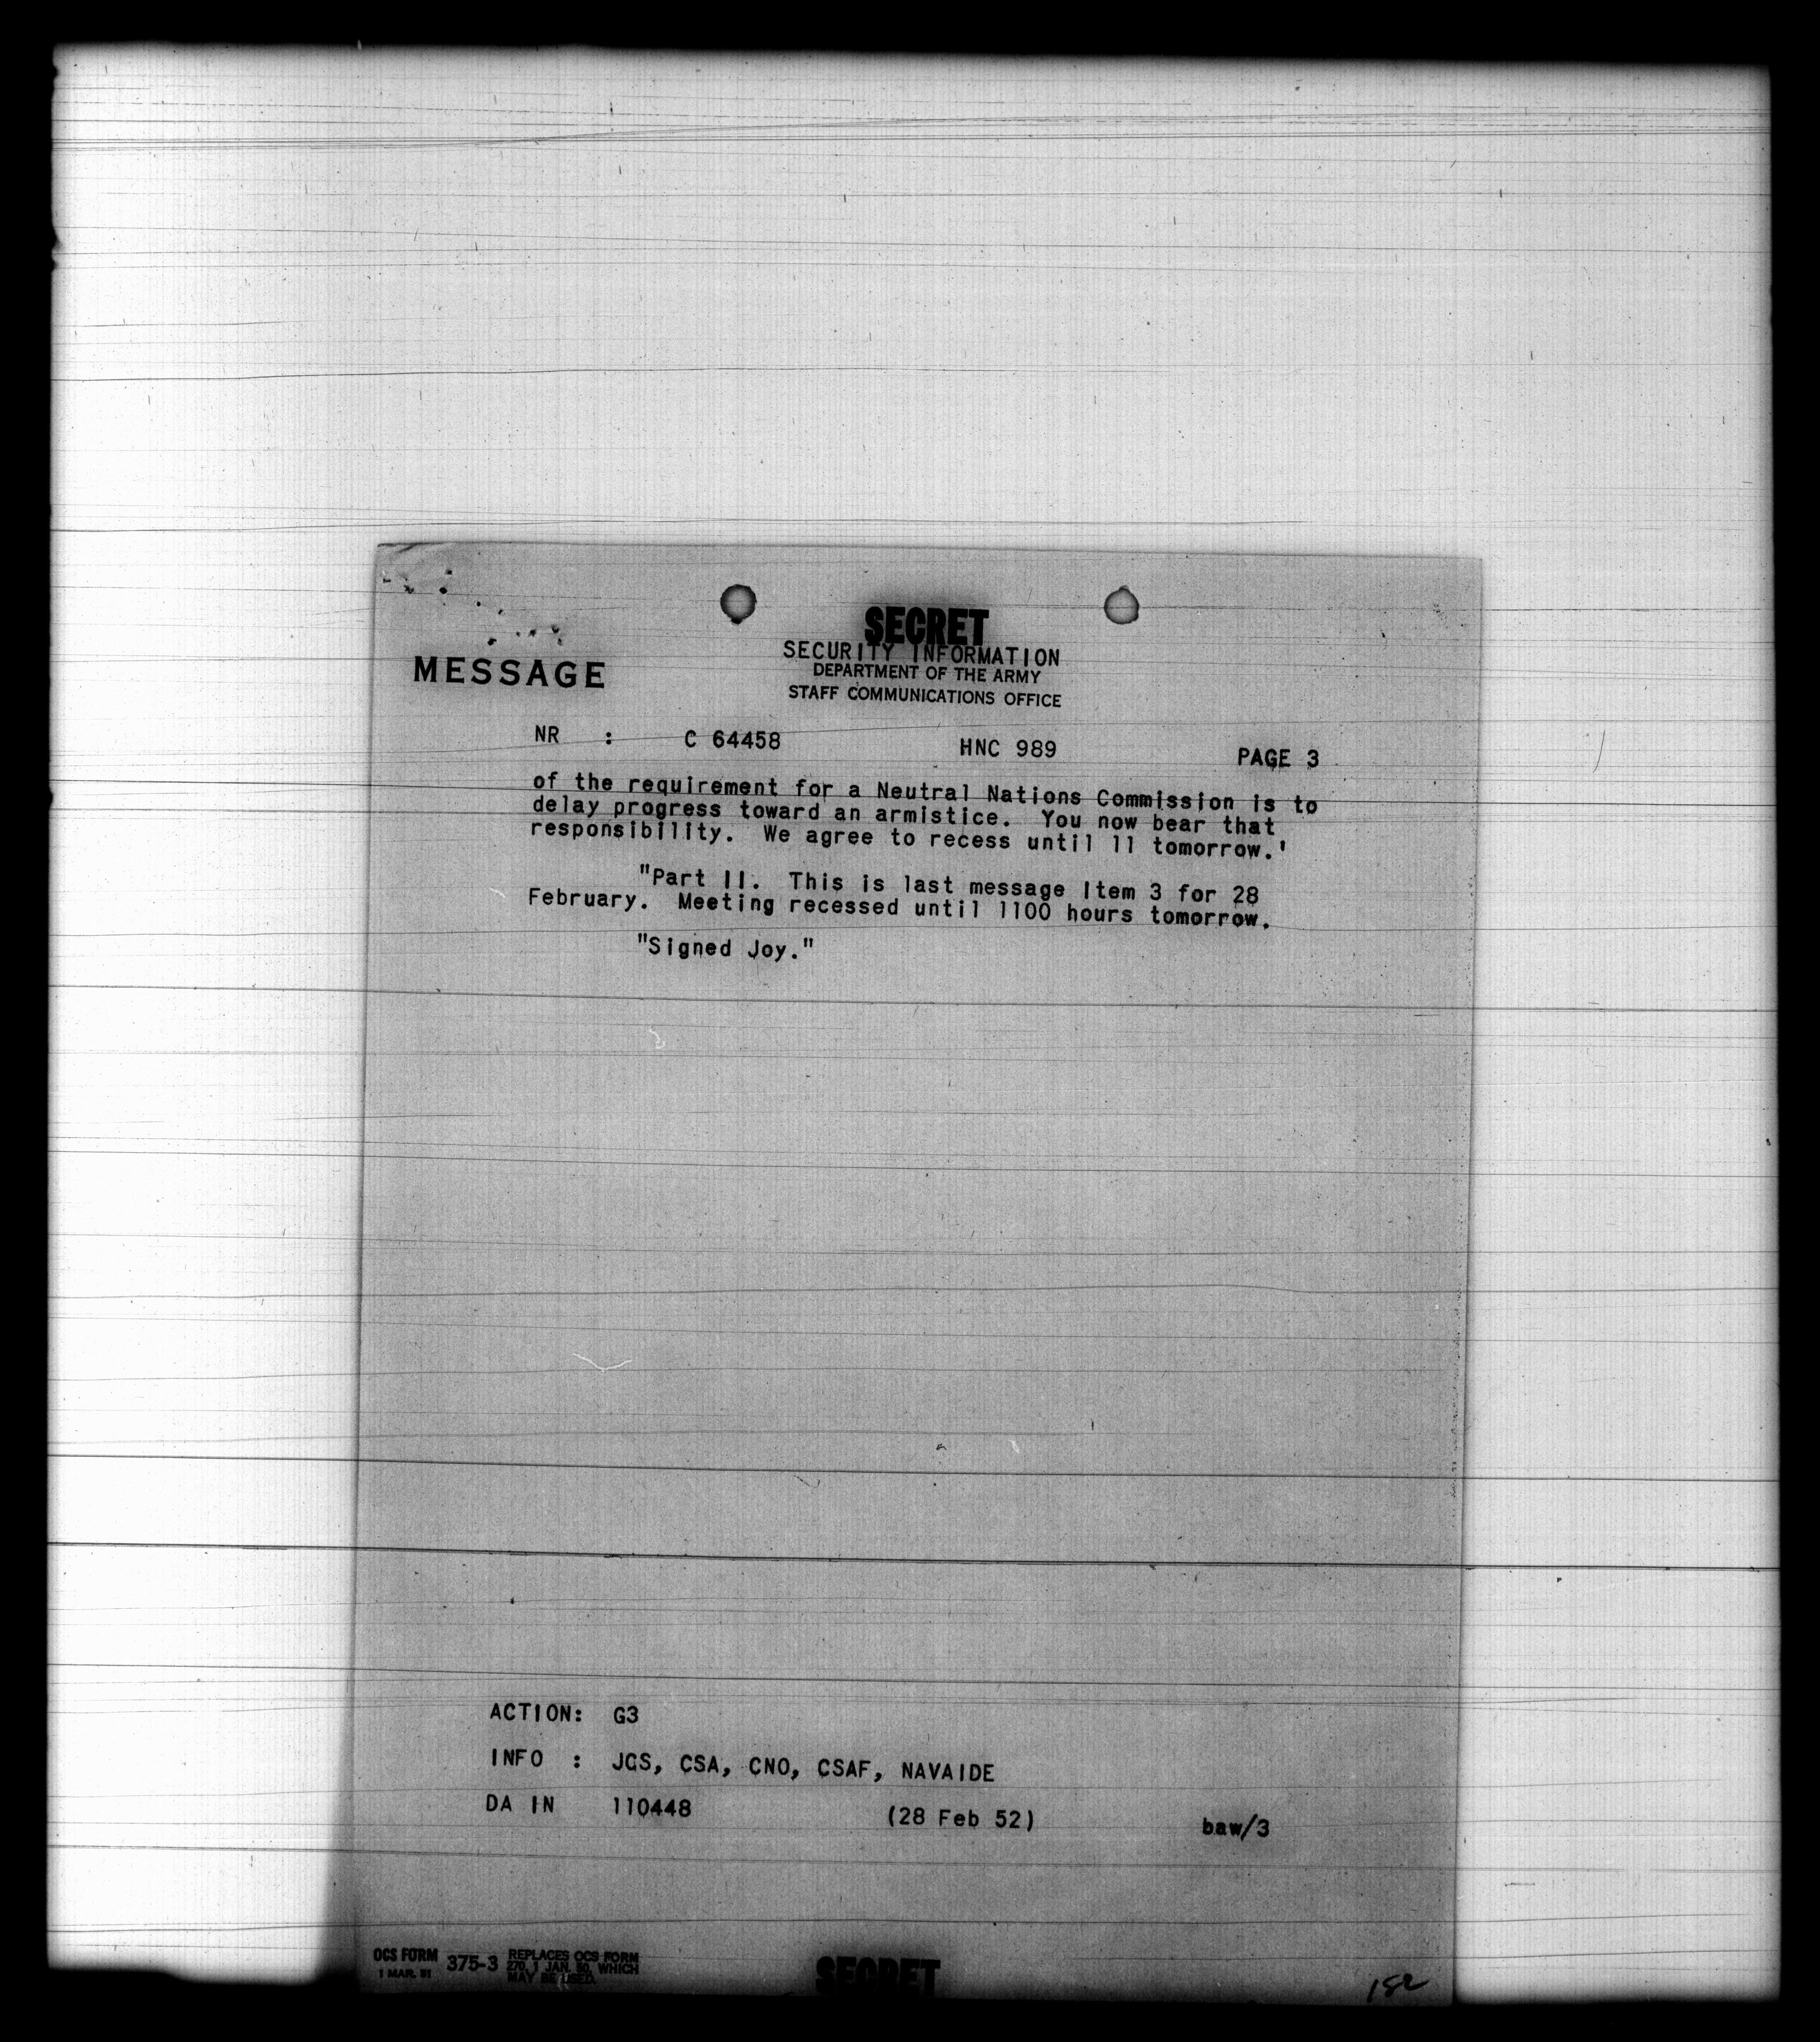 SECRET
SECURITY INFORMATION
MESSAGE
DEPARTMENT OF THE ARMY
STAFF COMMUNICATIONS OFFICE
NR : C 64458 HNC 989 PAGE 3
of the requirement for a Neutral Nations Commission is to
delay progress toward an armistice. You now bear that
responsibility. We agree to recess until 11 tomorrow.'
"Part II. This is last message Item 3 for 28
February. Meeting recessed until 1100 hours tomorrow.
"Signed Joy."
ACTION: G3
INFO : JCS, CSA, CNO, CSAF, NAVAIDE
DA IN 110448 (28 Feb 52) baw/3
OCS FORM 375-3 REPLACES OCS FORM
1 MAR. 51 270, 1 JAN. 50, WHICH
MAY BE USED.
SECRET
182